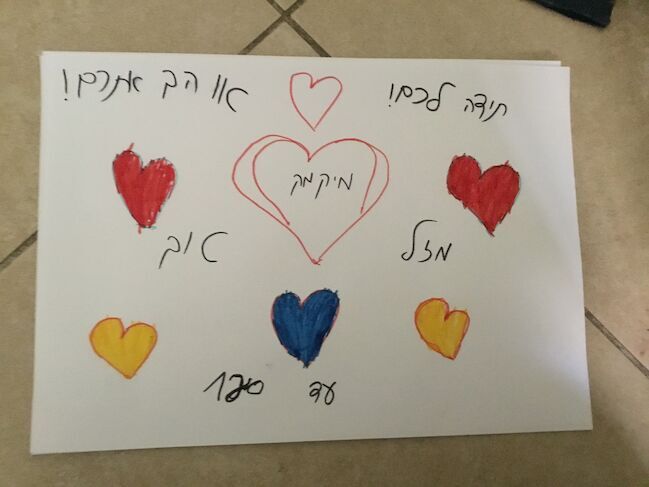 תודה לכם! או הב אתכם!
מיקמק
מזל טוב
עד